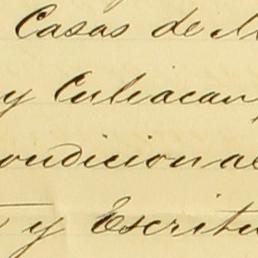 Casas de M
y Culiacan,
ondicional
y Escritu